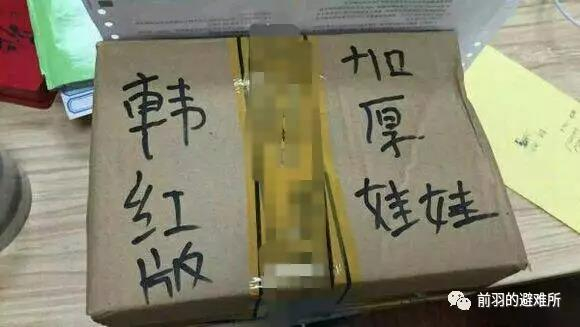 韩
红
版
加
厚
娃娃
前羽的避难所